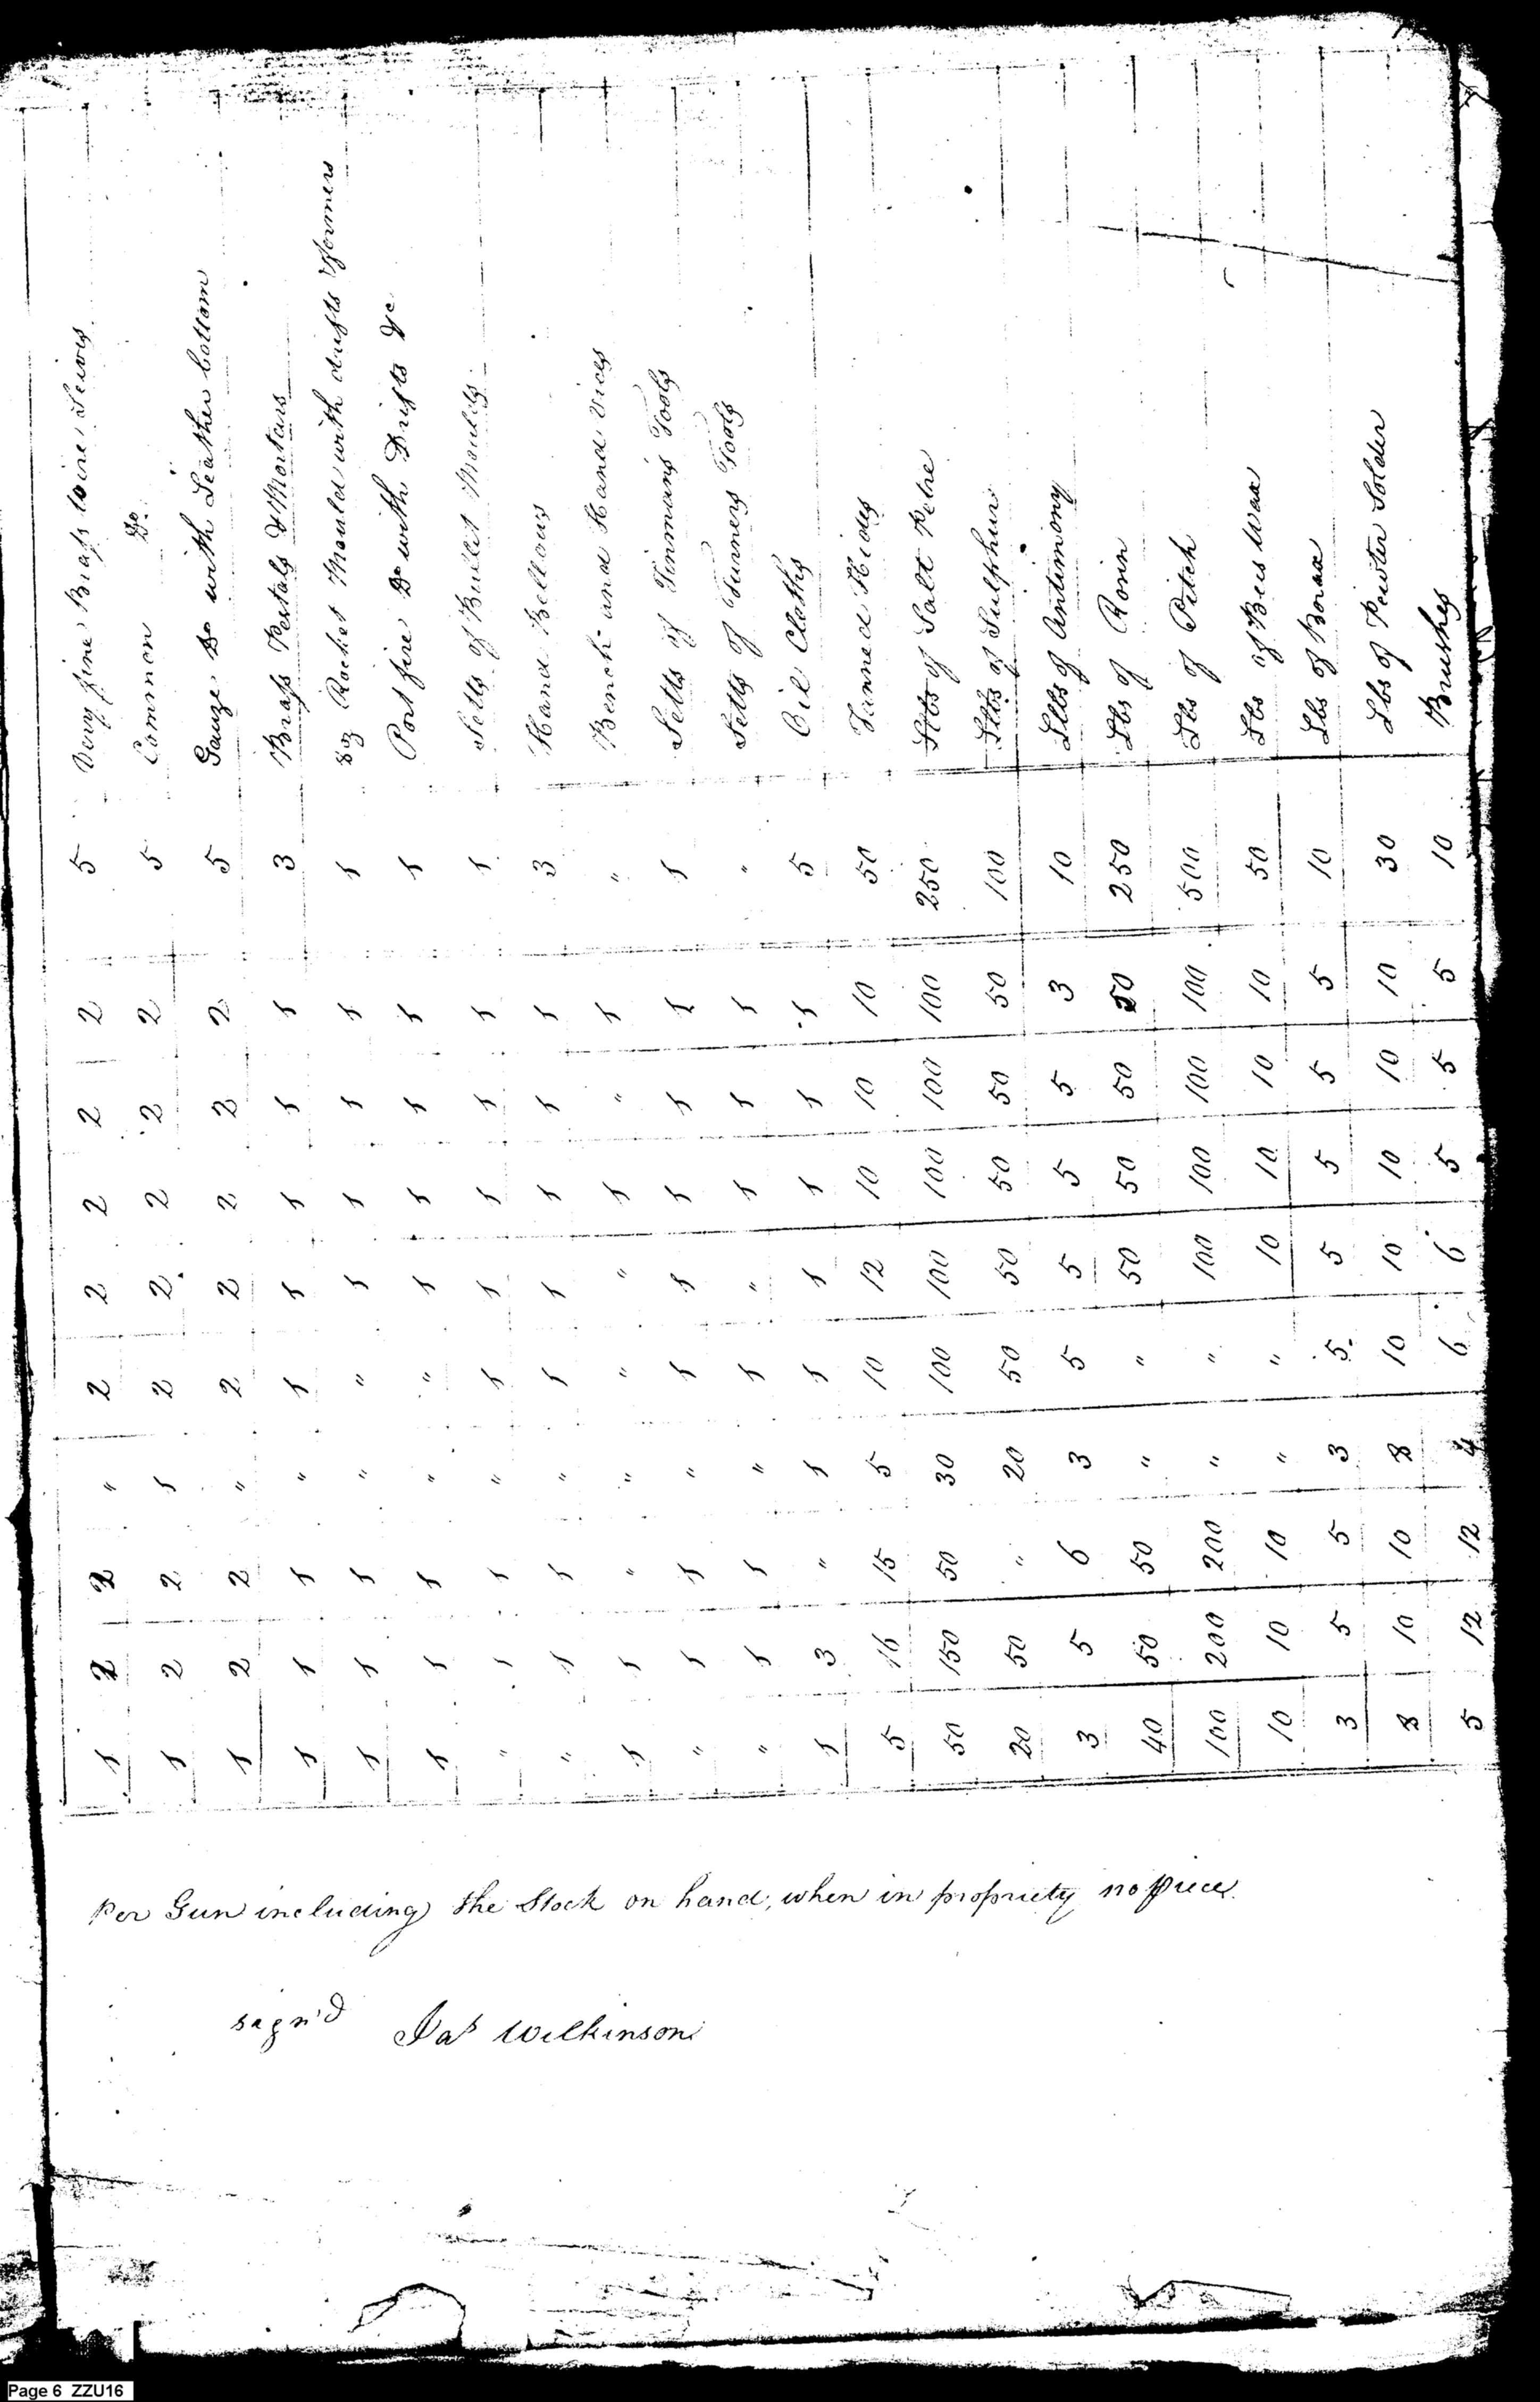 Very fine Brass wire Seives 5 2 2 2 2 2 " 2 2 1
Common Do. 5 2 2 2 2 2 1 2 2 1
Gauze Do with Leather bottom 5 2 2 2 2 2 " 2 2 1
Brass Pestals & Mortars 3 1 1 1 1 1 " 1 1 1
8 oz Rocket Mould with drifts & formers 1 1 1 1 1 " " 1 1 1
Port fire Do with Drifts &c 1 1 1 1 1 " " 1 1 1
Setts of Bullet Moulds 1 1 1 1 1 1 " 1 1 "
Hand Bellows 3 1 1 1 1 1 " 1 1 "
Bench and Hand Vices " 1 " 1 " " " " 1 1
Setts of Tinmans Tools 1 1 1 1 1 1 " 1 1 "
Setts of Turners Tools " 1 1 1 " 1 " 1 1 "
Oil Cloths 5 1 1 1 1 1 1 " 3 1
Tanned Hides 50 10 10 10 12 10 5 15 16 5
Lbs of Salt Petre 250 100 100 100 100 100 30 50 150 50
Lbs of Sulphur 100 50 50 50 50 50 20 " 50 20
Lbs of Antimony 10 3 5 5 5 5 3 6 5 3
Lbs of Rosin 250 50 50 50 50 " " 50 50 40
Lbs of Pitch 500 100 100 100 100 " " 200 200 100
Lbs of Bees Wax 50 10 10 10 10 " " 10 10 10
Lbs of Borax 10 5 5 5 5 5 3 5 5 3
Lbs of Pewter Solder 30 10 10 10 10 10 8 10 10 8
Brushes 10 5 5 5 6 6 4 12 12 5
Per Gun including the Stock on hand, when in propriety no piece
sign'd Jas Wilkinson
Page 6 ZZU16